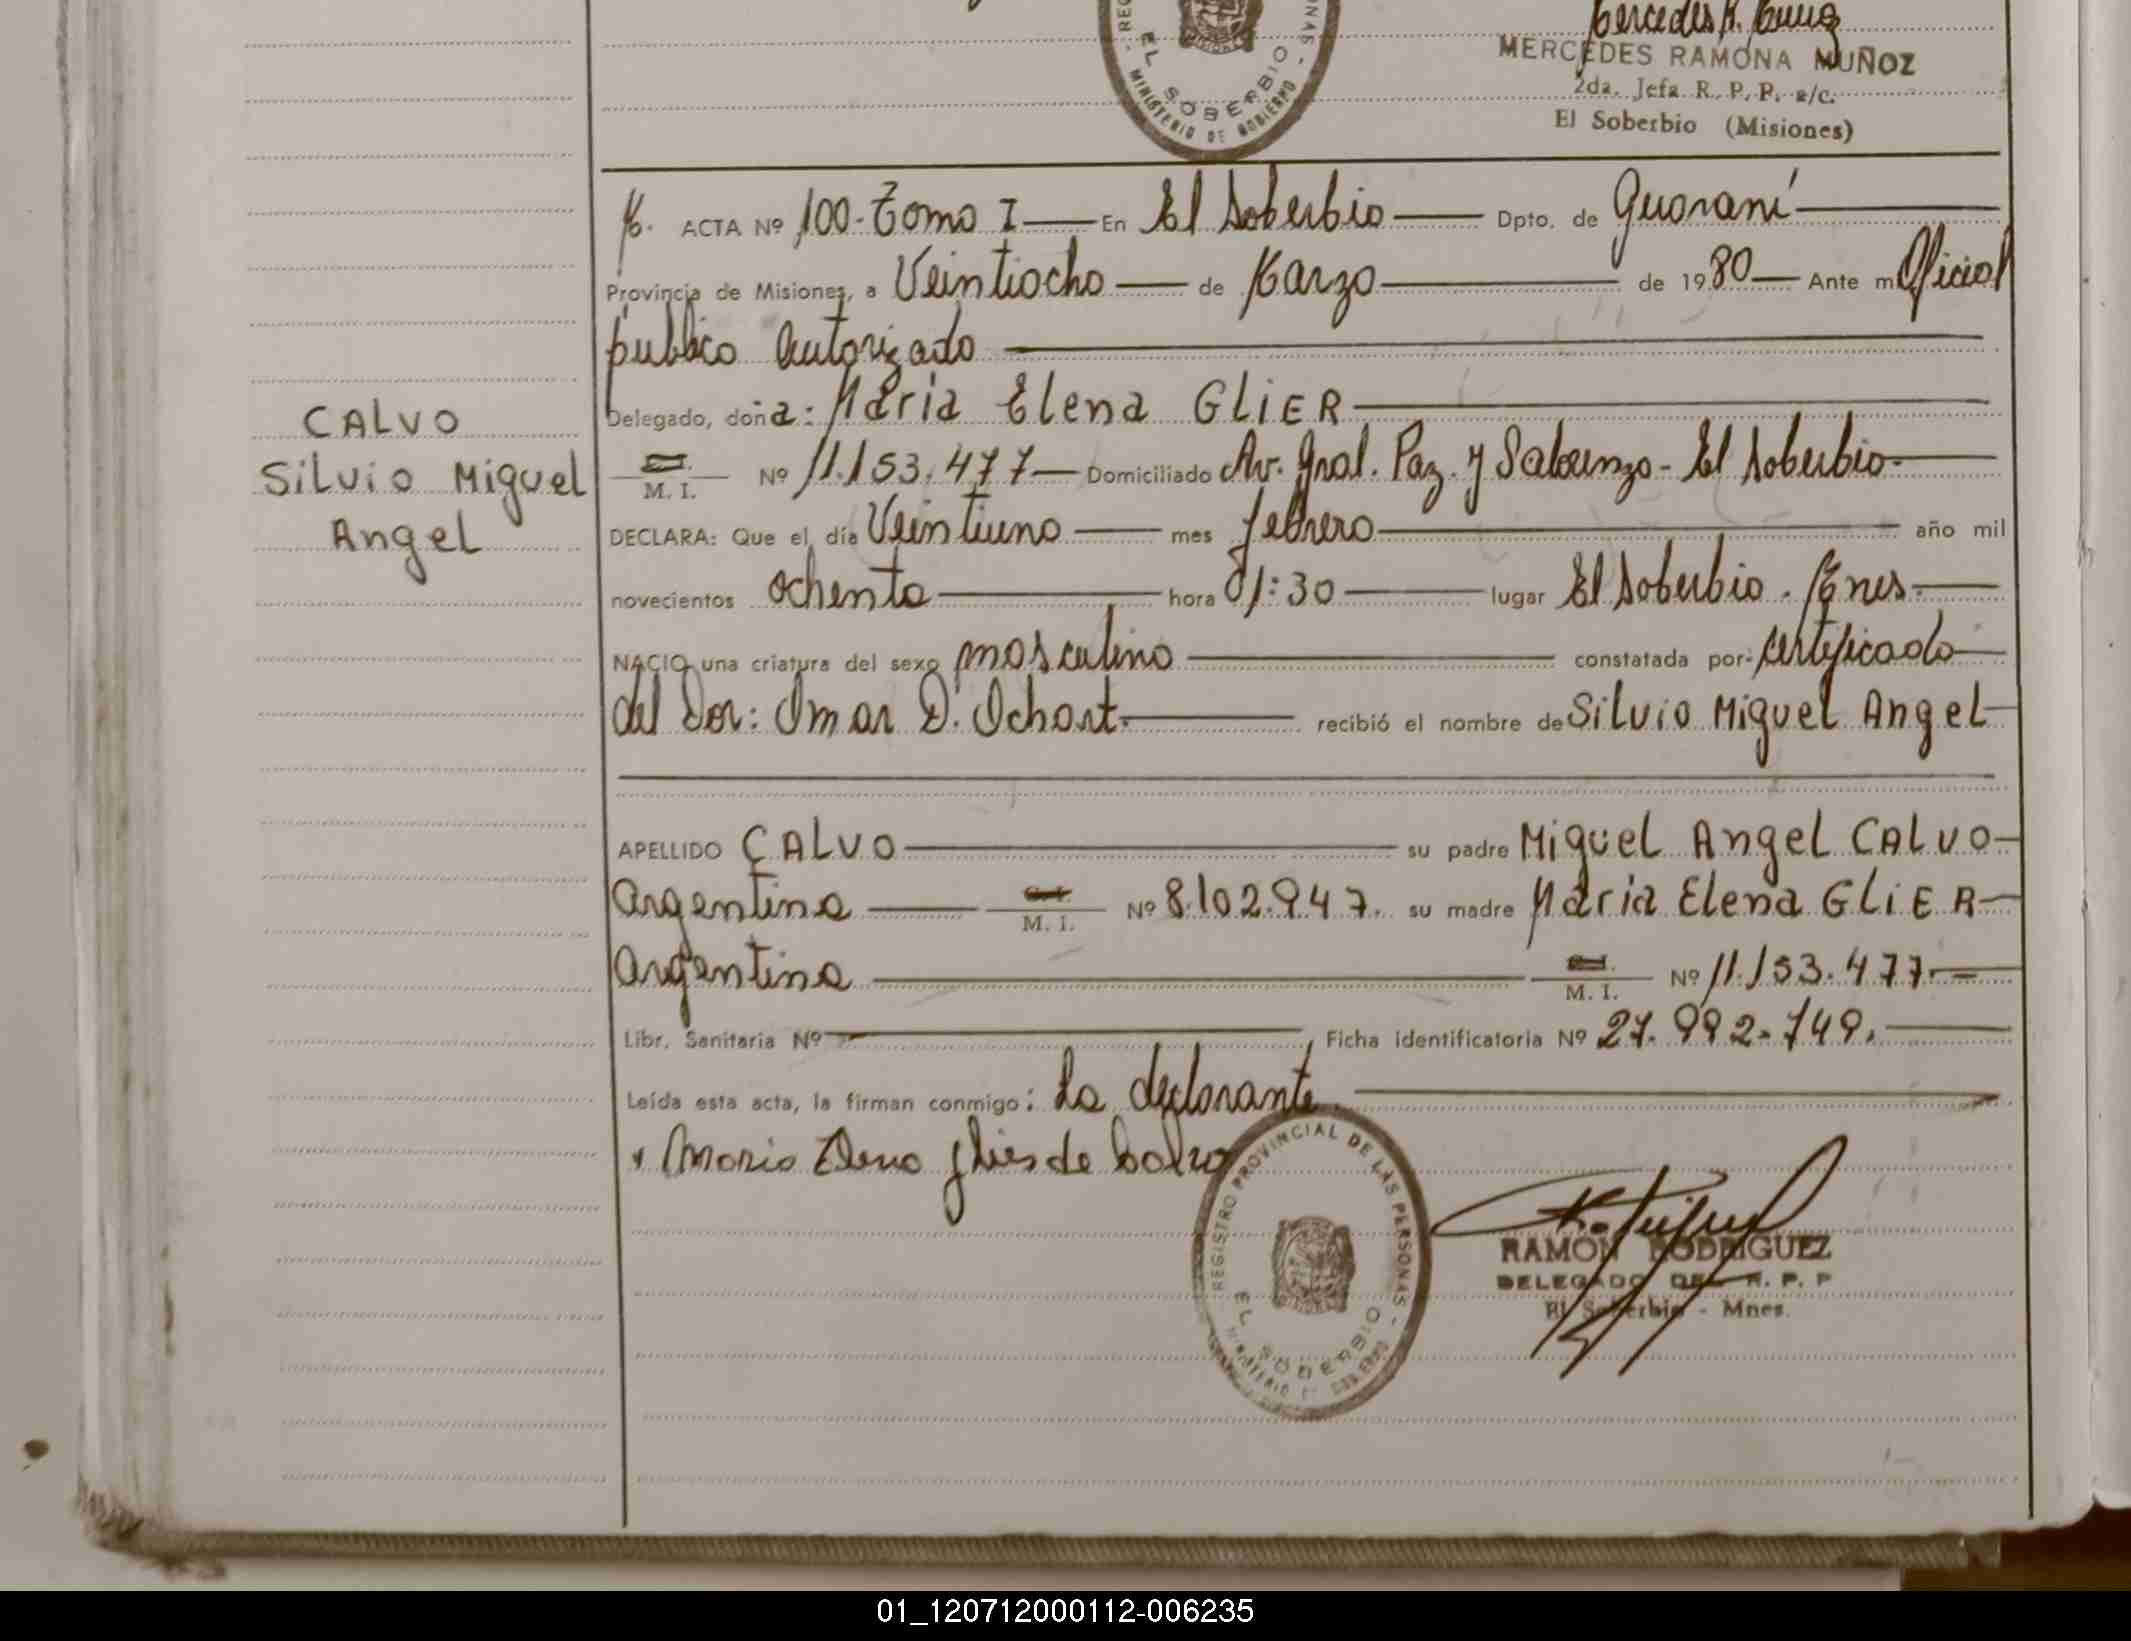 REGISTRO PROVINCIAL DE LAS PERSONAS
EL SOBERBIO
MINISTERIO DE GOBIERNO
MERCEDES RAMONA MUÑOZ
2da. Jefa R. P. P. a/c.
El Soberbio (Misiones)
CALVO
Silvio Miguel
Angel
M. ACTA Nº 100-Tomo I En El Soberbio Dpto. de Guaraní
Provincia de Misiones, a Veintiocho de Marzo de 1980 Ante mí Oficial
público autorizado
Delegado, doña: María Elena GLIER
M. I. Nº 11.153.477 Domiciliado Av. Gral. Paz y - El Soberbio-
DECLARA: Que el día Veintiuno mes febrero año mil
novecientos ochenta hora 01:30 lugar El Soberbio. Mnes.
NACIO una criatura del sexo masculino constatada por: certificado
del Dor: Omar D. Ochart. recibió el nombre de Silvio Miguel Angel
APELLIDO CALVO su padre Miguel Angel CALVO
argentina M. I. Nº 8.102.947. su madre María Elena GLIER
argentina M. I. Nº 11.153.477.
Libr. Sanitaria Nº Ficha identificatoria Nº 27.992.749.
Leída esta acta, la firman conmigo: La declarante.
Maria Elena Glier de Calvo
REGISTRO PROVINCIAL DE LAS PERSONAS
EL SOBERBIO
MINISTERIO DE GOBIERNO
RAMON RODRIGUEZ
DELEGADO DEL R. P. P
El Soberbio - Mnes.
01_120712000112-006235